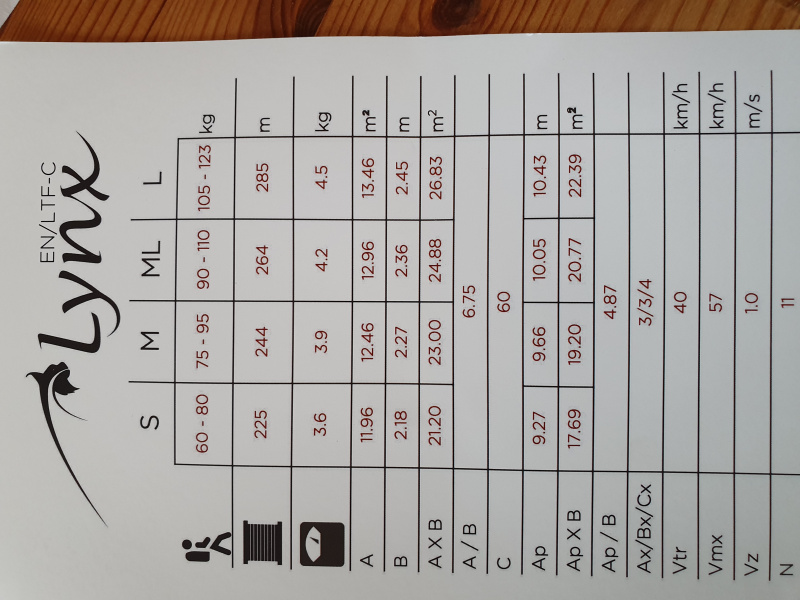 EN/LTF-C
Lynx
S M ML L
60 - 80 75 - 95 90 - 110 105 - 123 kg
225 244 264 285 m
3.6 3.9 4.2 4.5 kg
A 11.96 12.46 12.96 13.46 m²
B 2.18 2.27 2.36 2.45 m
A X B 21.20 23.00 24.88 26.83 m²
A / B 6.75
C 60
Ap 9.27 9.66 10.05 10.43 m
Ap X B 17.69 19.20 20.77 22.39 m²
Ap / B 4.87
Ax/Bx/Cx 3/3/4
Vtr 40 km/h
Vmx 57 km/h
Vz 1.0 m/s
N 11